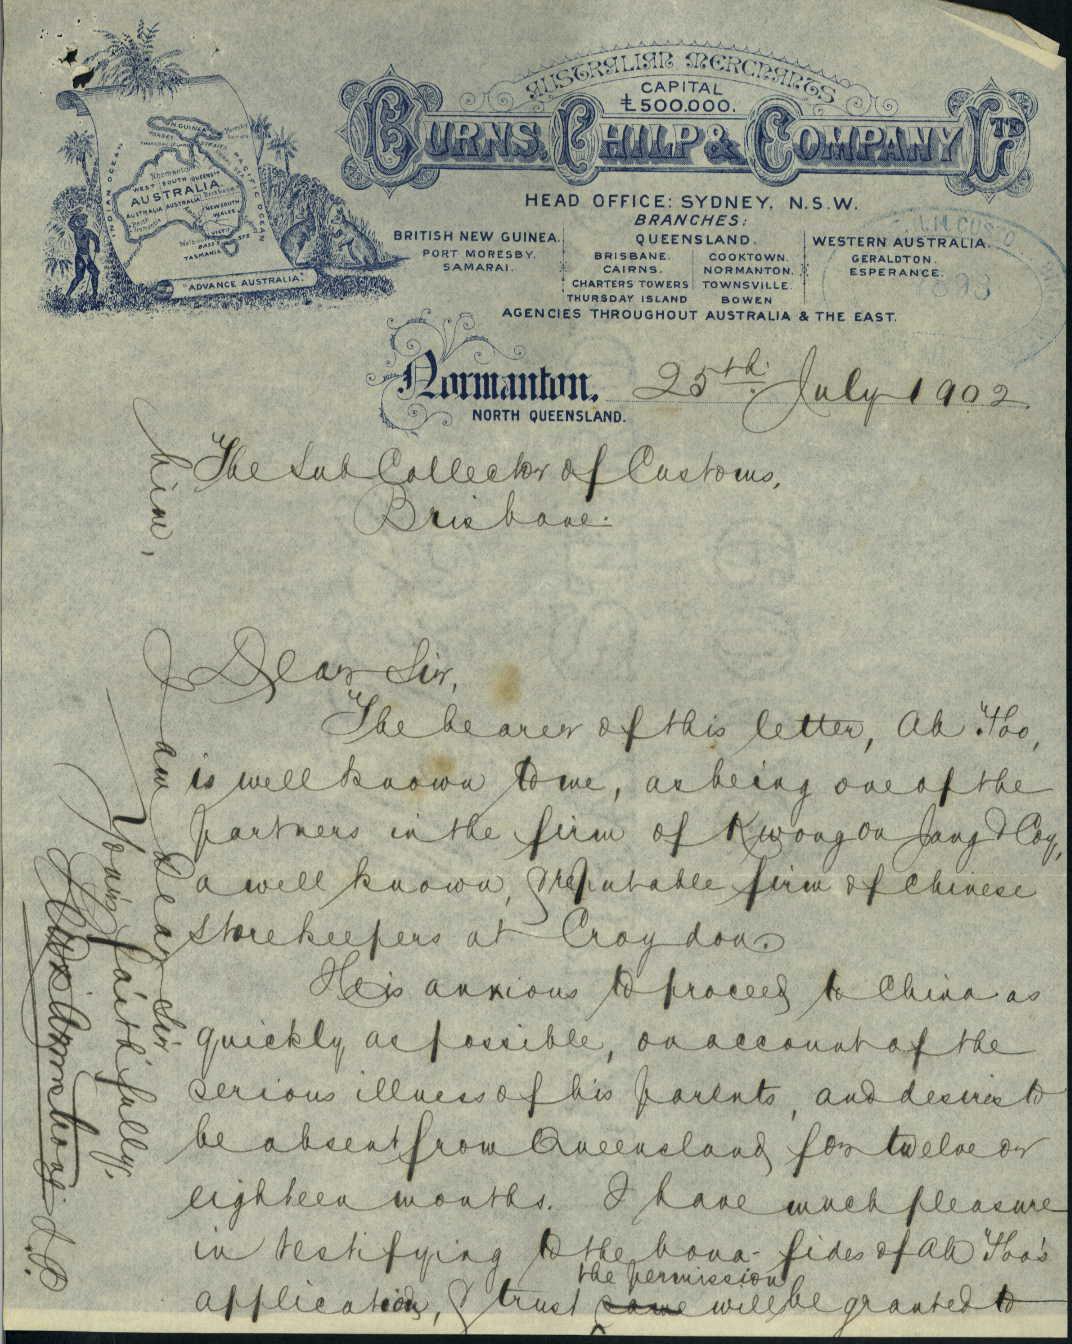 AUSTRALIAN MERCHANTS
CAPITAL
£500.000.
BURNS, PHILP & COMPANY LTD
HEAD OFFICE: SYDNEY, N.S.W.
BRANCHES:
BRITISH NEW GUINEA.
PORT MORESBY.
SAMARAI.
QUEENSLAND.
BRISBANE. COOKTOWN.
CAIRNS. NORMANTON.
CHARTERS TOWERS TOWNSVILLE.
THURSDAY ISLAND BOWEN
WESTERN AUSTRALIA.
GERALDTON.
ESPERANCE.
AGENCIES THROUGHOUT AUSTRALIA & THE EAST.
INDIAN OCEAN
PACIFIC OCEAN
N. GUINEA
Normanton
WEST SOUTH QUEENSLD
AUSTRALIA
AUSTRALIA AUSTRALIA Brisbane
NEW SOUTH
WALES
VICT
BASS STS
TASMANIA
"ADVANCE AUSTRALIA."
H.M. CUSTO
Normanton, 25th July 1902
NORTH QUEENSLAND.
The Sub Collector of Customs,
Brisbane.
Dear Sir,
The bearer of this letter, Ah Foo,
is well known to me, as being one of the
partners in the firm of Kwong On Jang & Coy,
a well known, & reputable firm of Chinese
storekeepers at Croydon.
He is anxious to proceed to China as
quickly as possible, on account of the
serious illness of his parents, and desires to
be absent from Queensland for twelve or
eighteen months. I have much pleasure
in testifying to the bona-fides of Ah Foo's
application, & trust same the permission will be granted to
him,
I am Dear Sir
Yours faithfully,
Armstrong J.P.